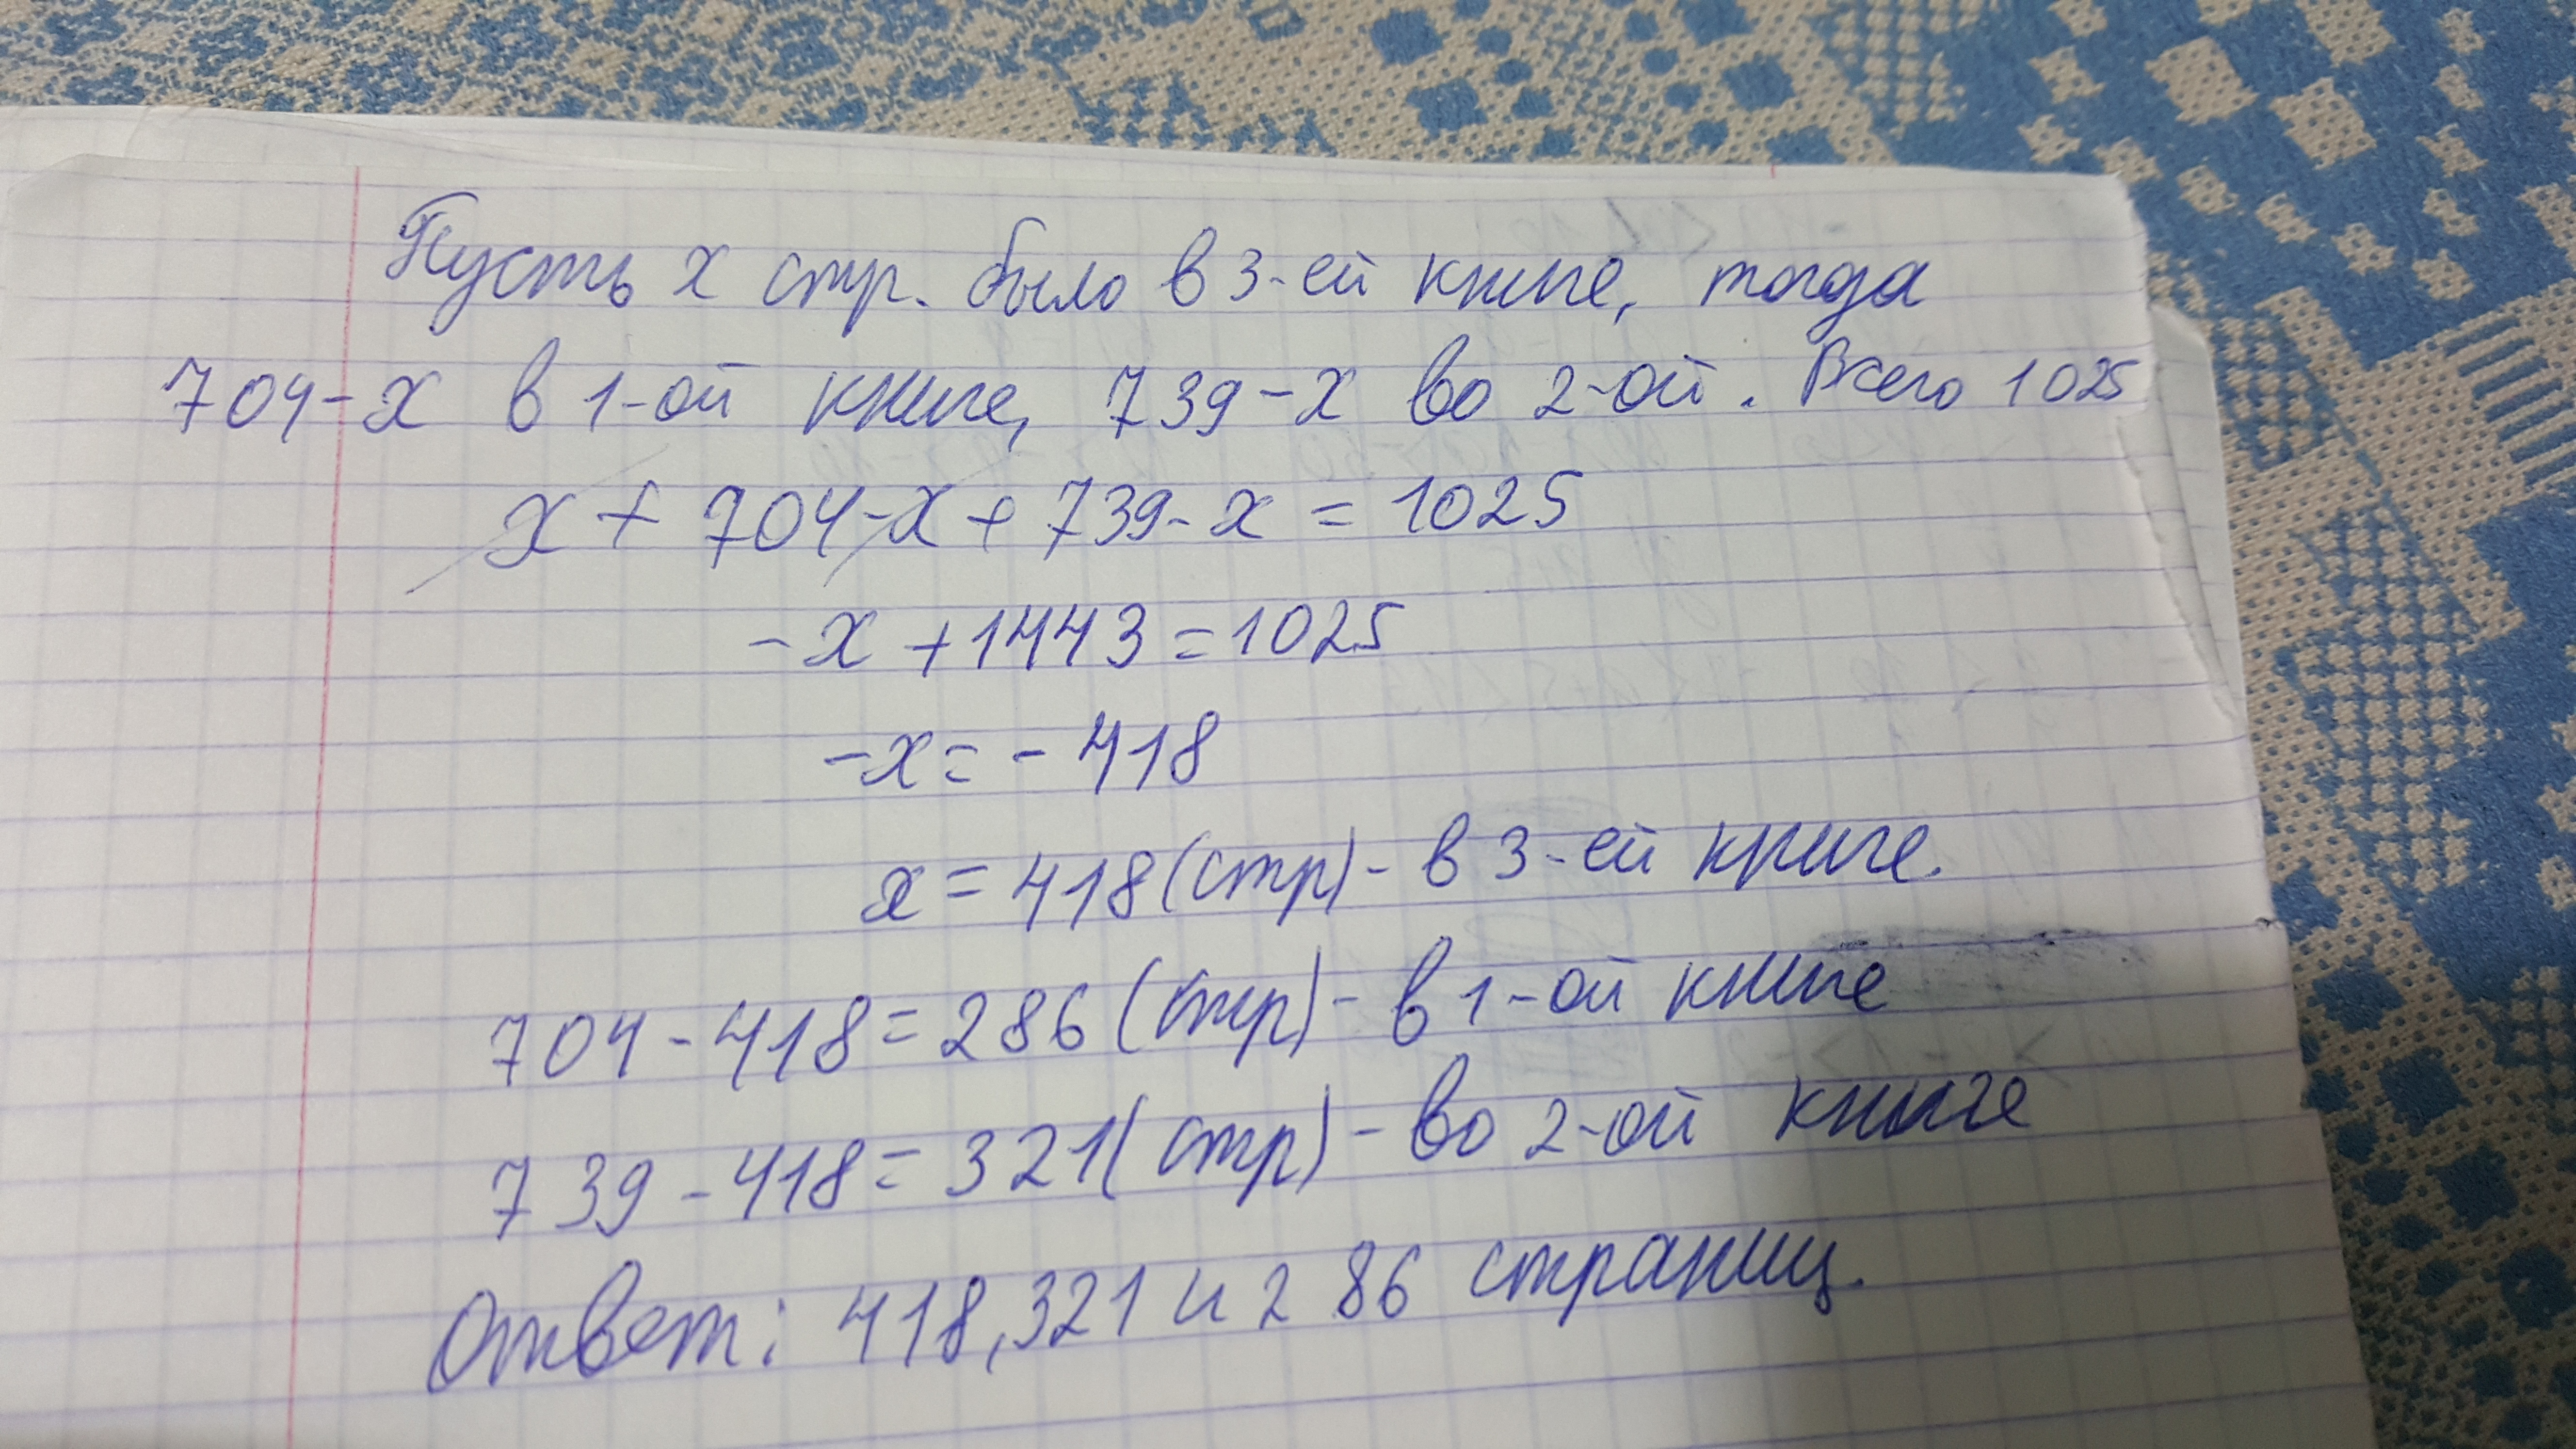 Пусть x стр. было в 3-ей книге, тогда
704-x в 1-ой книге, 739-x во 2-ой. Всего 1025
x + 704-x + 739-x = 1025
-x +1443=1025
-x= - 418
x=418(стр)- в 3-ей книге.
704-418=286(стр)- в 1-ой книге
739-418=321(стр)- во 2-ой книге
Ответ: 418,321 и 286 страниц.